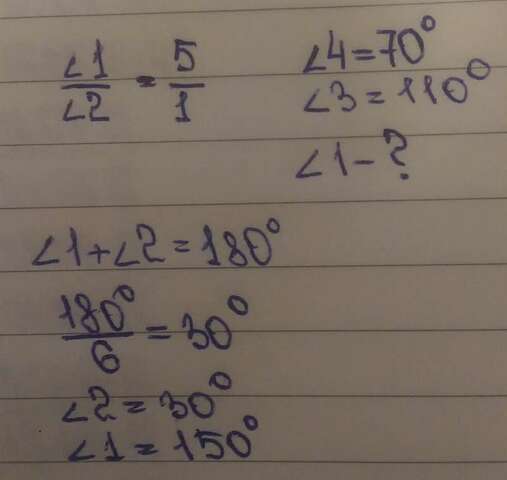 ∠1/∠2 = 5/1
∠4=70°
∠3=110°
∠1-?
∠1+∠2=180°
180°/6 = 30°
∠2=30°
∠1=150°